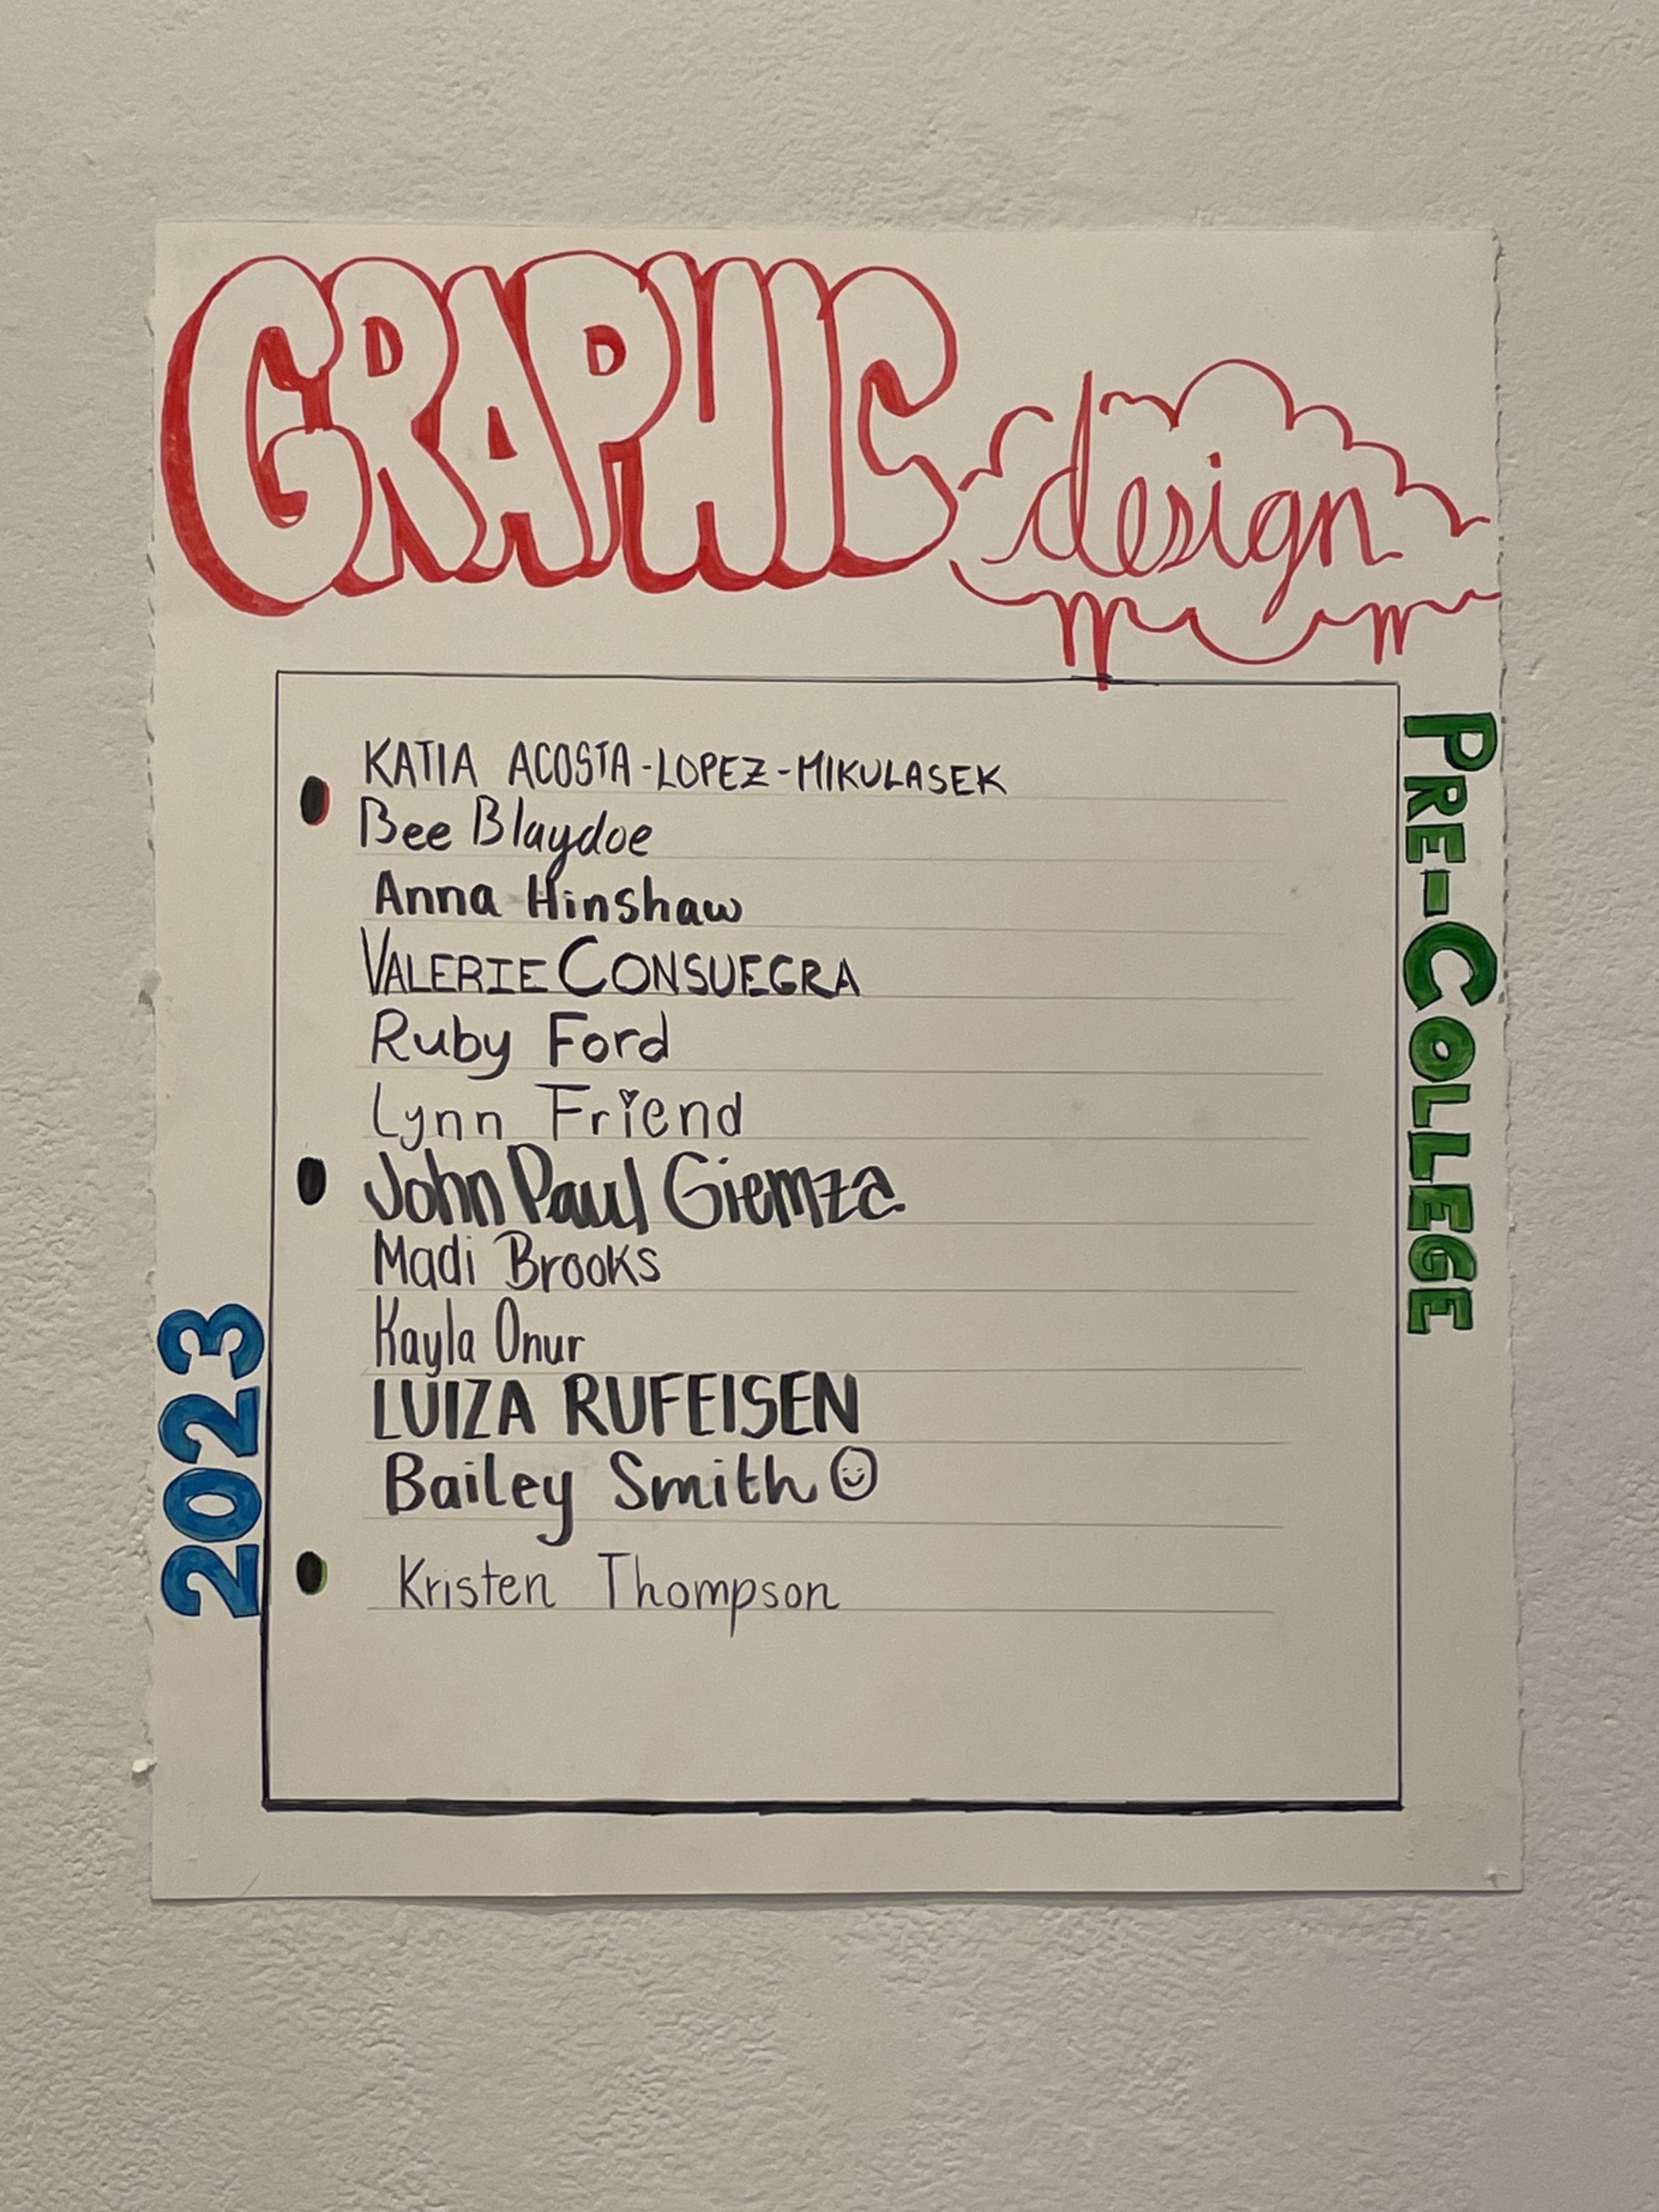 GRAPHIC design
KATIA ACOSTA-LOPEZ-MIKULASEK
Bee Blaydoe
Anna Hinshaw
VALERIE CONSUEGRA
Ruby Ford
Lynn Friend
John Paul Giemza
Madi Brooks
Kayla Onur
LUIZA RUFEISEN
Bailey Smith
Kristen Thompson
PRE-COLLEGE
2023